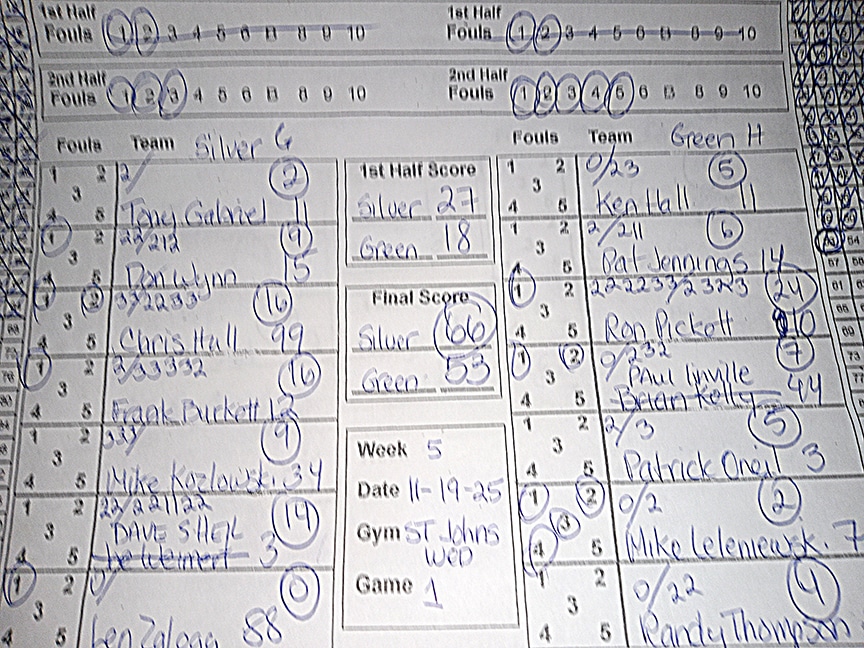 1st Half
Fouls 1 2 3 4 5 6 8 9 10
1st Half
Fouls 1 2 3 4 5 6 8 9 10
2nd Half
Fouls 1 2 3 4 5 6 8 9 10
2nd Half
Fouls 1 2 3 4 5 6 8 9 10
Fouls Team Silver G
1 2 3 4 5 2/ 2
Tony Gabriel 11
1 2 3 4 5 22/212 9
Don Wynn 15
1 2 3 4 5 33/2233 16
Chris Hall 99
1 2 3 4 5 3/33332
Frank Buckett 12
1 2 3 4 5 333/ 9
Mike Kozlowski 34
1 2 3 4 5 22/221122 14
DAVE
3
1 2 3 4 5 0/ 0
Len Zaloga 88
1st Half Score
Silver 27
Green 18
Final Score
Silver 66
Green 53
Week 5
Date 11-19-25
Gym ST Johns
WED
Game 1
Fouls Team Green H
1 2 3 4 5 0/23 5
Ken Hall 11
1 2 3 4 5 2/211 6
Pat Jennings 14
1 2 3 4 5 222233/2323 24
Ron Pickett 10
1 2 3 4 5 0/232 7
PAul linville
Brian Kelly 44
1 2 3 4 5 2/3 5
Patrick Oneil 3
1 2 3 4 5 0/2 2
Mike 7
1 2 3 4 5 0/22 4
Randy Thompson